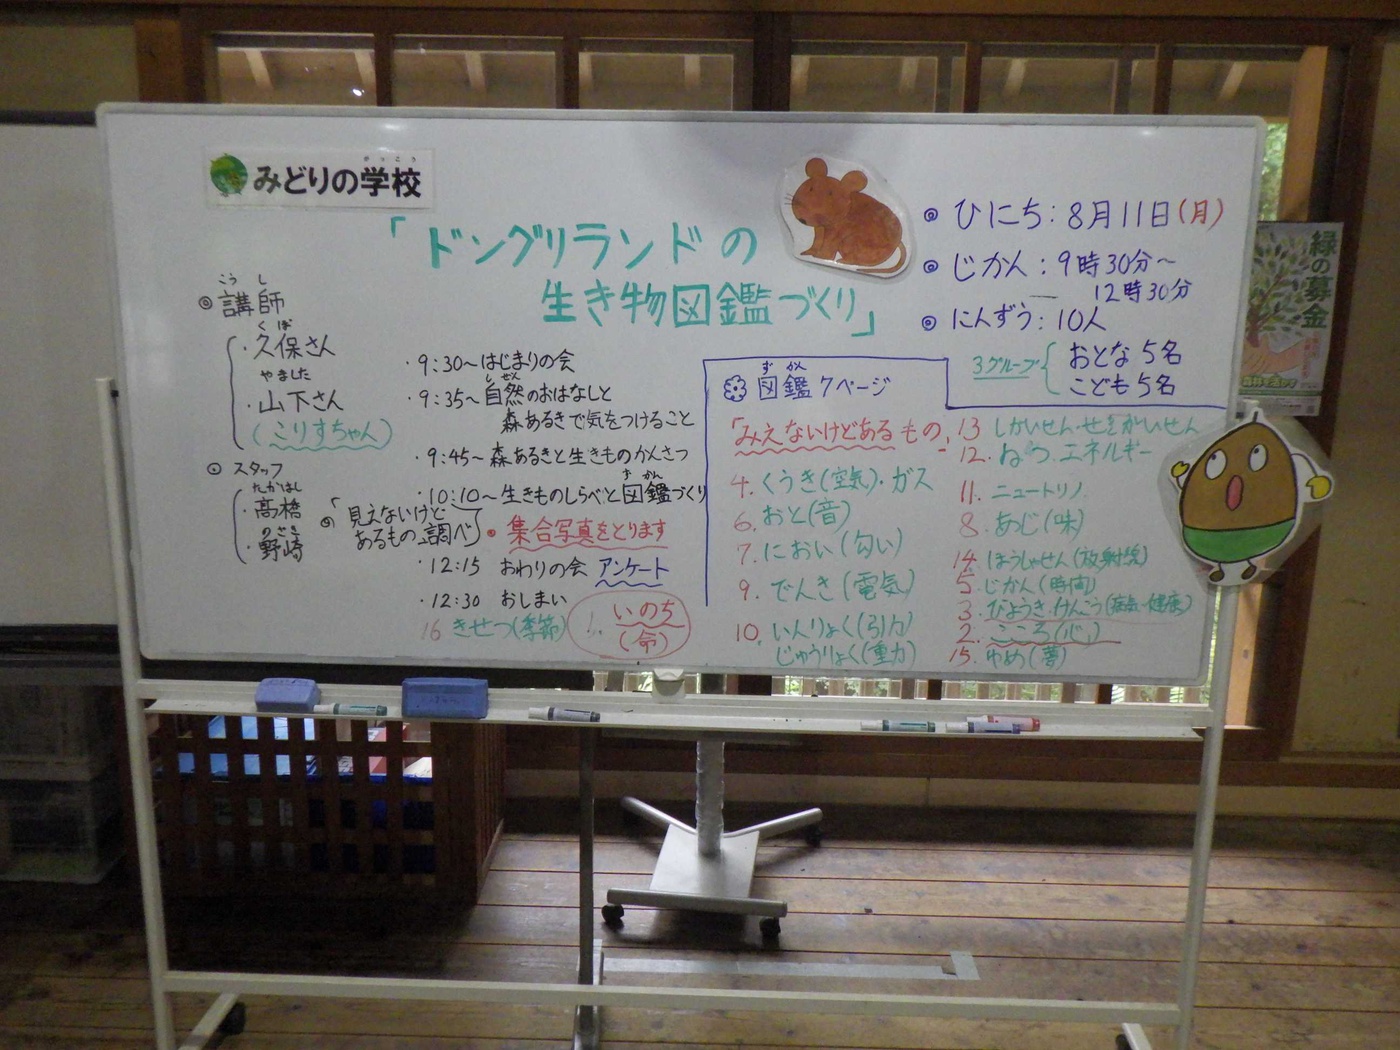 がっこう
みどりの学校
「ドングリランドの
生き物図鑑づくり」
◎ ひにち：8月11日(月)
◎ じかん：9時30分～
12時30分
◎ にんずう：10人
3グループ
おとな 5名
こども 5名
こうし
◎ 講師
くぼ
・久保さん
やました
・山下さん
(こりすちゃん)
スタッフ
たかはし
・高橋
のざき
・野崎
・9:30～はじまりの会
しぜん
・9:35～自然のおはなしと
森あるきで気をつけること
・9:45～森あるきと生きものかんさつ
ずかん
・10:10～生きものしらべと図鑑づくり
「見えないけど
あるもの調べ」
・集合写真をとります
・12:15 おわりの会 アンケート
・12:30 おしまい
16 きせつ(季節)
1. いのち
(命)
ずかん
図鑑 7ページ
「みえないけどあるもの」
4. くうき(空気)・ガス
6. おと(音)
7. におい(匂い)
9. でんき(電気)
10. いんりょく(引力)
じゅうりょく(重力)
13 しがいせん・せきがいせん
12. ねつ エネルギー
11. ニュートリノ
8. あじ(味)
14. ほうしゃせん(放射線)
5. じかん(時間)
3. びょうき・けんこう(病気・健康)
2. こころ(心)
15. ゆめ(夢)
緑の募金